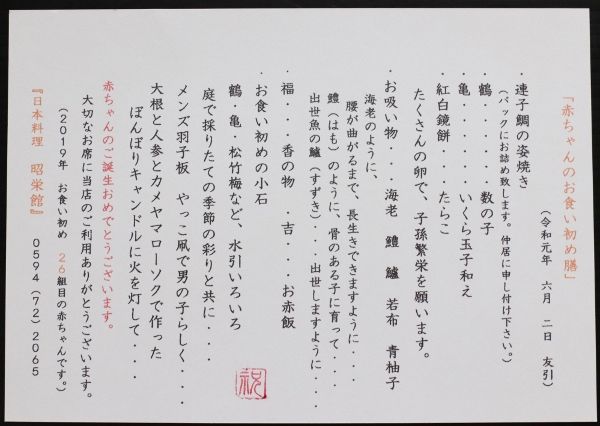 「赤ちゃんのお食い初め膳」
(令和元年 六月 二日 友引)
・連子鯛の姿焼き
(パックにお詰め致します。仲居に申し付け下さい。)
・鶴・・・・・・数の子
・亀・・・・・・いくら玉子和え
・紅白鏡餅・・たらこ
たくさんの卵で、子孫繁栄を願います。
・お吸い物・・・海老 鱧 鱸 若布 青柚子
海老のように、
腰が曲がるまで、長生きできますように・・・
鱧(はも)のように、骨のある子に育って・・・
出世魚の鱸(すずき)・・・出世しますように・・・
・福・・・香の物 ・吉・・・お赤飯
・お食い初めの小石
鶴・亀・松竹梅など、水引いろいろ
庭で採りたての季節の彩りと共に・・・
メンズ羽子板 やっこ凧で男の子らしく・・・
大根と人参とカメヤマローソクで作った
ぼんぼりキャンドルに火を灯して・・・
祝
赤ちゃんのご誕生おめでとうございます。
大切なお席に当店のご利用ありがとうございます。
(2019年 お食い初め 26組目の赤ちゃんです。)
『日本料理 昭栄館』 0594(72)2065